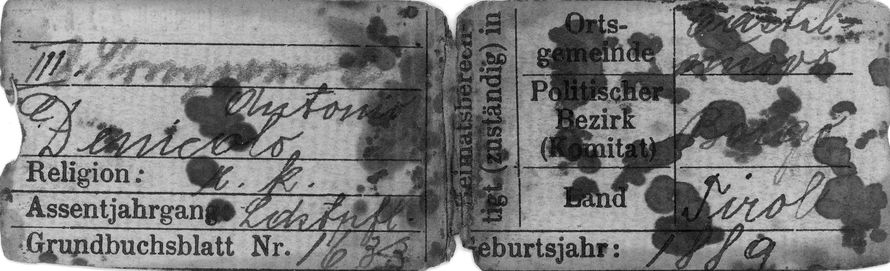 Antonio
Denicolo
Religion: r. k.
Assentjahrgang Ldstpfl
Grundbuchsblatt Nr. 1633
Heimatsberech-
tigt (zuständig) in
Orts-
gemeinde
Castel-
nuovo
Politischer
Bezirk
(Komitat)
Borgo
Land
Tirol
Geburtsjahr: 1889